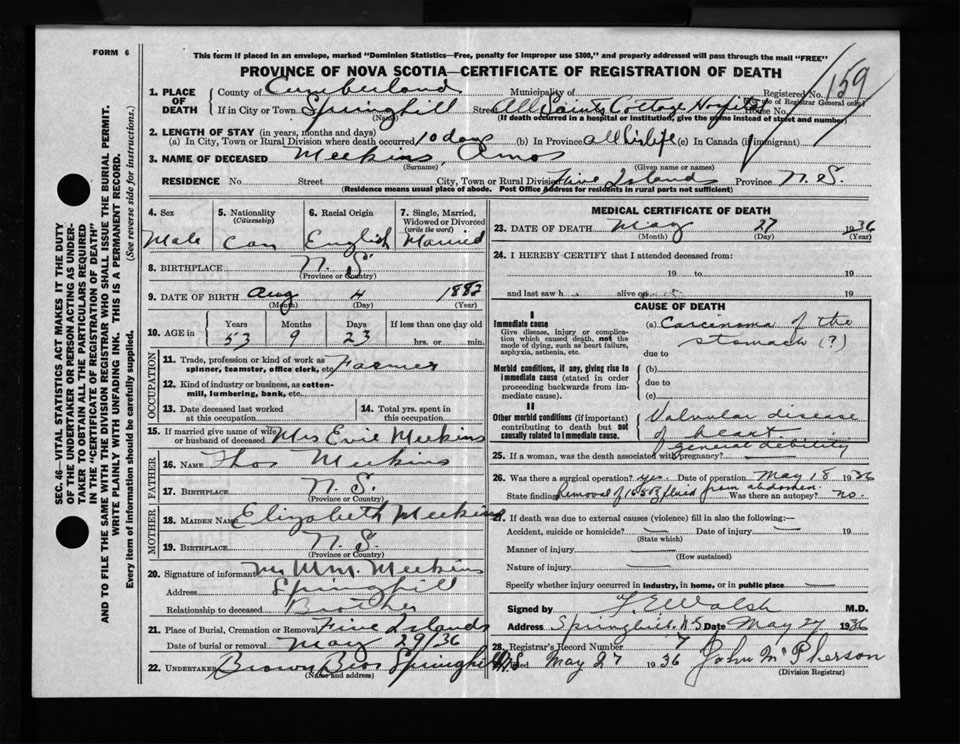 FORM 6
This form if placed in an envelope, marked "Dominion Statistics—Free, penalty for improper use $300," and properly addressed will pass through the mail "FREE"
PROVINCE OF NOVA SCOTIA—CERTIFICATE OF REGISTRATION OF DEATH
159
1. PLACE OF DEATH County of Cumberland Municipality of Registered No.
(For use of Registrar General only)
If in City or Town Springhill Street All Saints Cottage Hospital House No.
(Name) (If death occurred in a hospital or institution, give the name instead of street and number)
2. LENGTH OF STAY (in years, months and days)
(a) In City, Town or Rural Division where death occurred 10 days (b) In Province all his life (c) In Canada (if immigrant)
3. NAME OF DECEASED Meekins, Amos
(Surname) (Given name or names)
RESIDENCE No. Street City, Town or Rural Division Five Islands Province N. S.
(Residence means usual place of abode. Post Office Address for residents in rural parts not sufficient)
4. Sex Male
5. Nationality (Citizenship) Can
6. Racial Origin English
7. Single, Married, Widowed or Divorced (write the word) Married
8. BIRTHPLACE N. S.
(Province or Country)
9. DATE OF BIRTH Aug 4 1882
(Month) (Day) (Year)
10. AGE in Years Months Days If less than one day old
53 9 23 hrs. or min.
OCCUPATION
11. Trade, profession or kind of work as spinner, teamster, office clerk, etc. Farmer
12. Kind of industry or business, as cotton-mill, lumbering, bank, etc.
13. Date deceased last worked at this occupation
14. Total yrs. spent in this occupation
15. If married give name of wife or husband of deceased Mrs Evie Meekins
FATHER
16. NAME Thos Meekins
17. BIRTHPLACE N. S.
(Province or Country)
MOTHER
18. MAIDEN NAME Elizabeth Meekins
19. BIRTHPLACE N. S.
(Province or Country)
20. Signature of informant Mr Wm. Meekins
Address Springhill
Relationship to deceased Brother
21. Place of Burial, Cremation or Removal Five Islands
Date of burial or removal May 29/36
22. UNDERTAKER Brown Bros Springhill N.S.
(Name and address)
MEDICAL CERTIFICATE OF DEATH
23. DATE OF DEATH May 27 1936
(Month) (Day) (Year)
24. I HEREBY CERTIFY that I attended deceased from:
19 to 19
and last saw h alive on 19
CAUSE OF DEATH
I
Immediate cause (a) Carcinoma of the stomach (?)
Give disease, injury or complication which caused death, not the mode of dying, such as heart failure, asphyxia, asthenia, etc.
due to
Morbid conditions, if any, giving rise to immediate cause (stated in order proceeding backwards from immediate cause). (b)
due to
(c)
II
Other morbid conditions (if important) contributing to death but not causally related to immediate cause. Valvular disease of heart
general debility
25. If a woman, was the death associated with pregnancy?
26. Was there surgical operation? yes. Date of operation May 18 1936
State finding Removal of fluid from abdomen Was there an autopsy? no.
27. If death was due to external causes (violence) fill in also the following:—
Accident, suicide or homicide? Date of injury 19
(State which)
Manner of injury
(How sustained)
Nature of injury
Specify whether injury occurred in industry, in home, or in public place
Signed by J. E. Walsh M.D.
Address Springhill. N.S. Date May 27 1936
28. Registrar's Record Number 7
Filed May 27 1936 John McPherson
(Division Registrar)
SEC. 46—VITAL STATISTICS ACT MAKES IT THE DUTY
OF THE UNDERTAKER OR PERSON ACTING AS UNDER-
TAKER TO OBTAIN ALL THE PARTICULARS REQUIRED
IN THE "CERTIFICATE OF REGISTRATION OF DEATH"
AND TO FILE THE SAME WITH THE DIVISION REGISTRAR WHO SHALL ISSUE THE BURIAL PERMIT.
WRITE PLAINLY WITH UNFADING INK. THIS IS A PERMANENT RECORD.
Every item of information should be carefully supplied. (See reverse side for instructions.)